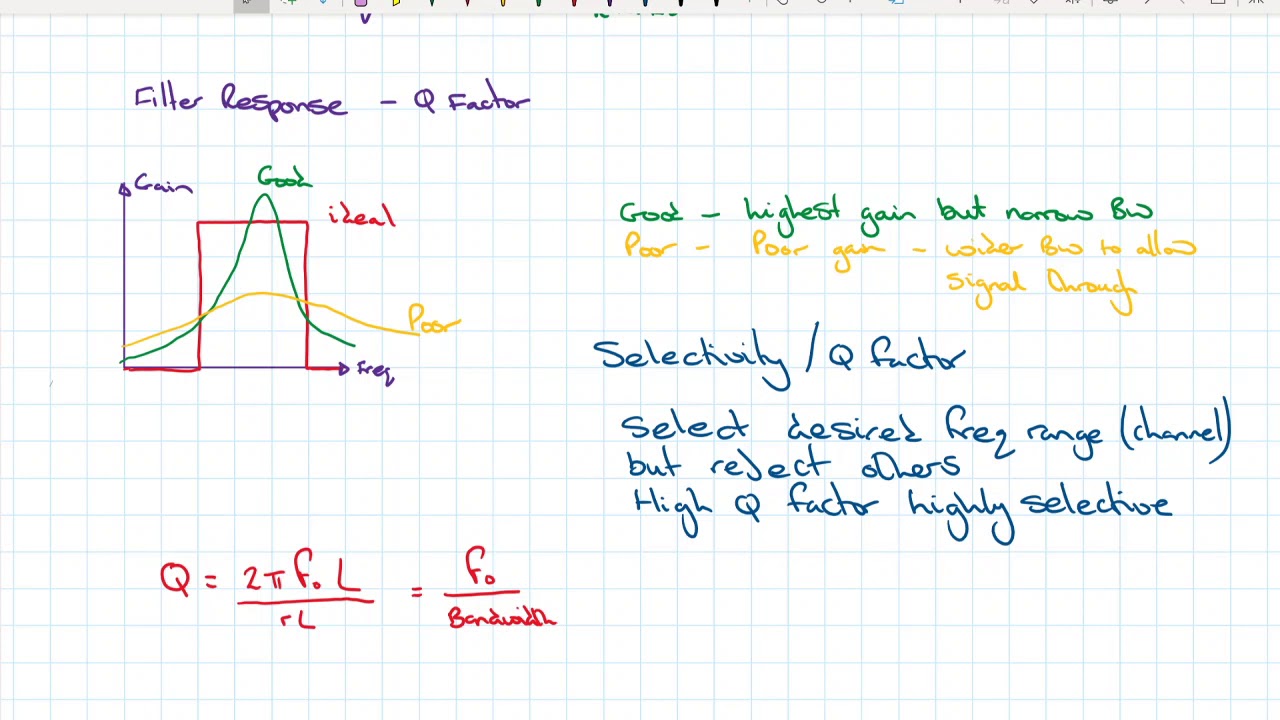 Filter Response - Q Factor
Gain
Good
ideal
Poor
Freq
Good - highest gain but narrow BW
Poor - Poor gain - wider BW to allow
signal through
Selectivity / Q factor
Select desired freq range (channel)
but reject others
High Q factor highly selective
Q = 2π f₀ L / rL = f₀ / Bandwidth